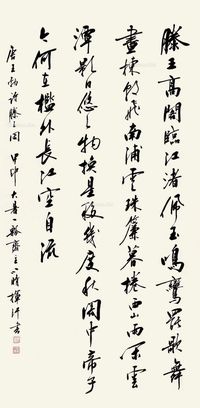 滕王高閣臨江渚佩玉鳴鸞罷歌舞
畫棟朝飛南浦雲珠簾暮捲西山雨閒雲
潭影日悠々物換星移幾度秋閣中帝子
今何在檻外長江空自流
唐王勃詩滕王閣 甲申大暑一齋主揮汗書